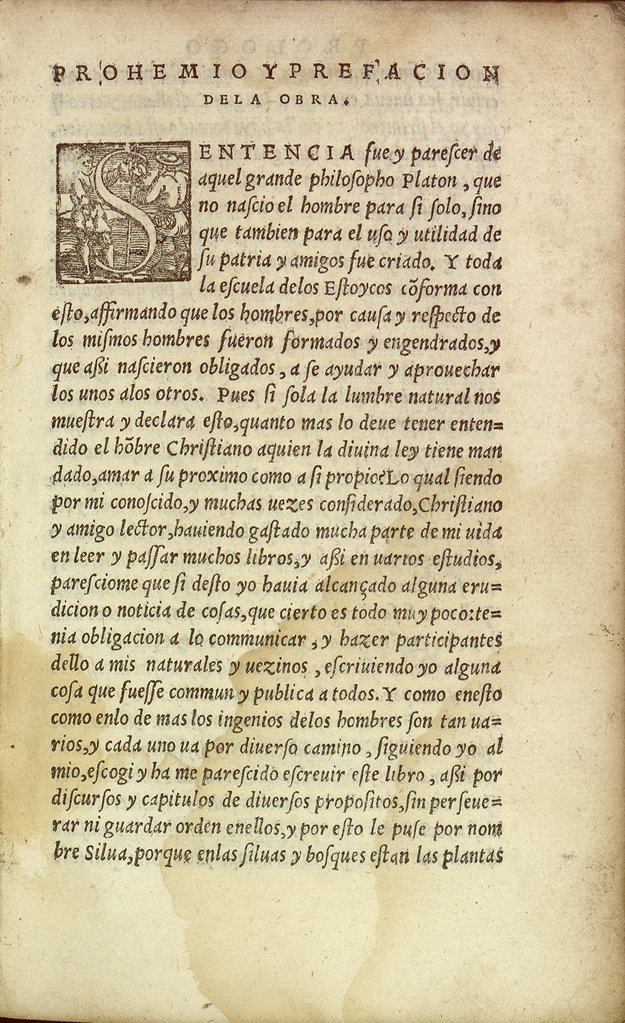 PROHEMIO Y PREFACION
DE LA OBRA.
SENTENCIA fue y pareſcer de
aquel grande philoſopho Platon, que
no naſcio el hombre para ſi ſolo, ſino
que tambien para el uſo y utilidad de
ſu patria y amigos fue criado. Y toda
la eſcuela delos Eſtoycos cõforma con
eſto, affirmando que los hombres, por cauſa y reſpecto de
los miſmos hombres fueron formados y engendrados, y
que aßi naſcieron obligados, a ſe ayudar y aprouechar
los unos alos otros. Pues ſi ſola la lumbre natural nos
mueſtra y declara eſto, quanto mas lo deue tener enten=
dido el hõbre Chriſtiano aquien la diuina ley tiene man
dado, amar a ſu proximo como a ſi propio? Lo qual ſiendo
por mi conoſcido, y muchas uezes conſiderado, Chriſtiano
y amigo lector, hauiendo gaſtado mucha parte de mi uida
en leer y paſſar muchos libros, y aßi en uarios eſtudios,
pareſciome que ſi deſto yo hauia alcançado alguna eru=
dicion o noticia de coſas, que cierto es todo muy poco: te=
nia obligacion a lo communicar, y hazer participantes
dello a mis naturales y uezinos, eſcriuiendo yo alguna
coſa que fueſſe commun y publica a todos. Y como eneſto
como enlo de mas los ingenios delos hombres ſon tan ua=
rios, y cada uno ua por diuerſo camino, ſiguiendo yo al
mio, eſcogi y ha me pareſcido eſcreuir eſte libro, aßi por
diſcurſos y capitulos de diuerſos propoſitos, ſin perſeue=
rar ni guardar orden enellos, y por eſto le puſe por nom
bre Silua, porque enlas ſiluas y boſques eſtan las plantas